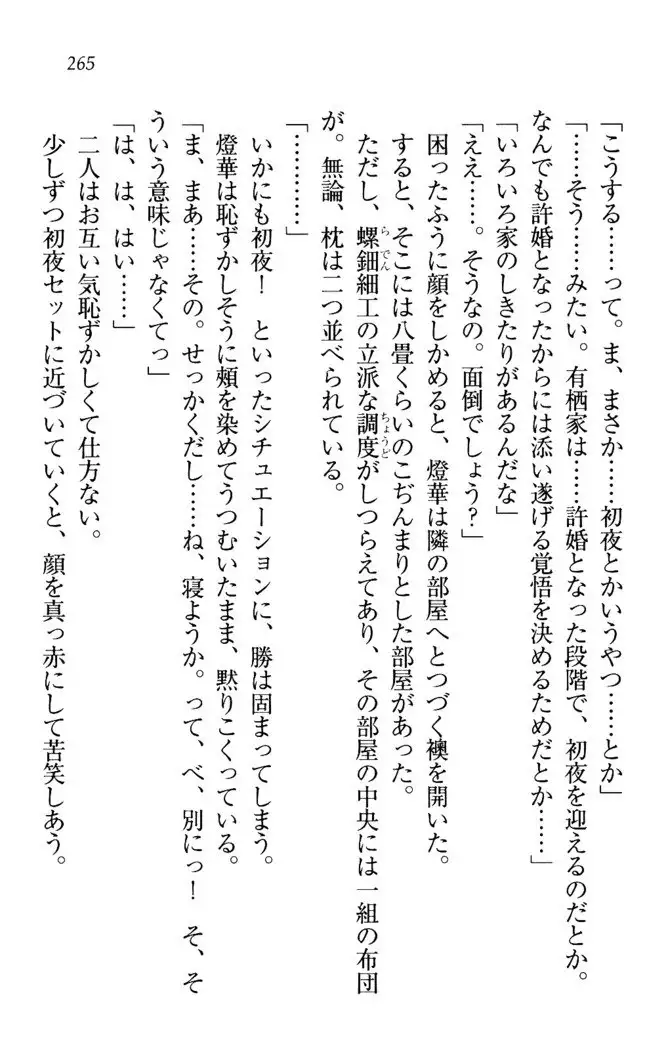 265
「こうする……って。ま、まさか……初夜とかいうやつ……とか」
「……そう……みたい。有栖家は……許婚となった段階で、初夜を迎えるのだとか。
なんでも許婚となったからには添い遂げる覚悟を決めるためだとか……」
「いろいろ家のしきたりがあるんだな」
「ええ……。そうなの。面倒でしょう？」
困ったふうに顔をしかめると、燈華は隣の部屋へとつづく襖を開いた。
すると、そこには八畳くらいのこぢんまりとした部屋があった。
ただし、螺鈿細工の立派な調度がしつらえてあり、その部屋の中央には一組の布団
らでん
ちょうど
が。無論、枕は二つ並べられている。
「…………」
いかにも初夜！　といったシチュエーションに、勝は固まってしまう。
燈華は恥ずかしそうに頰を染めてうつむいたまま、黙りこくっている。
「ま、まあ……その。せっかくだし……ね、寝ようか。って、べ、別にっ！　そ、そ
ういう意味じゃなくてっ」
「は、は、はい……」
二人はお互い気恥ずかしくて仕方ない。
少しずつ初夜セットに近づいていくと、顔を真っ赤にして苦笑しあう。